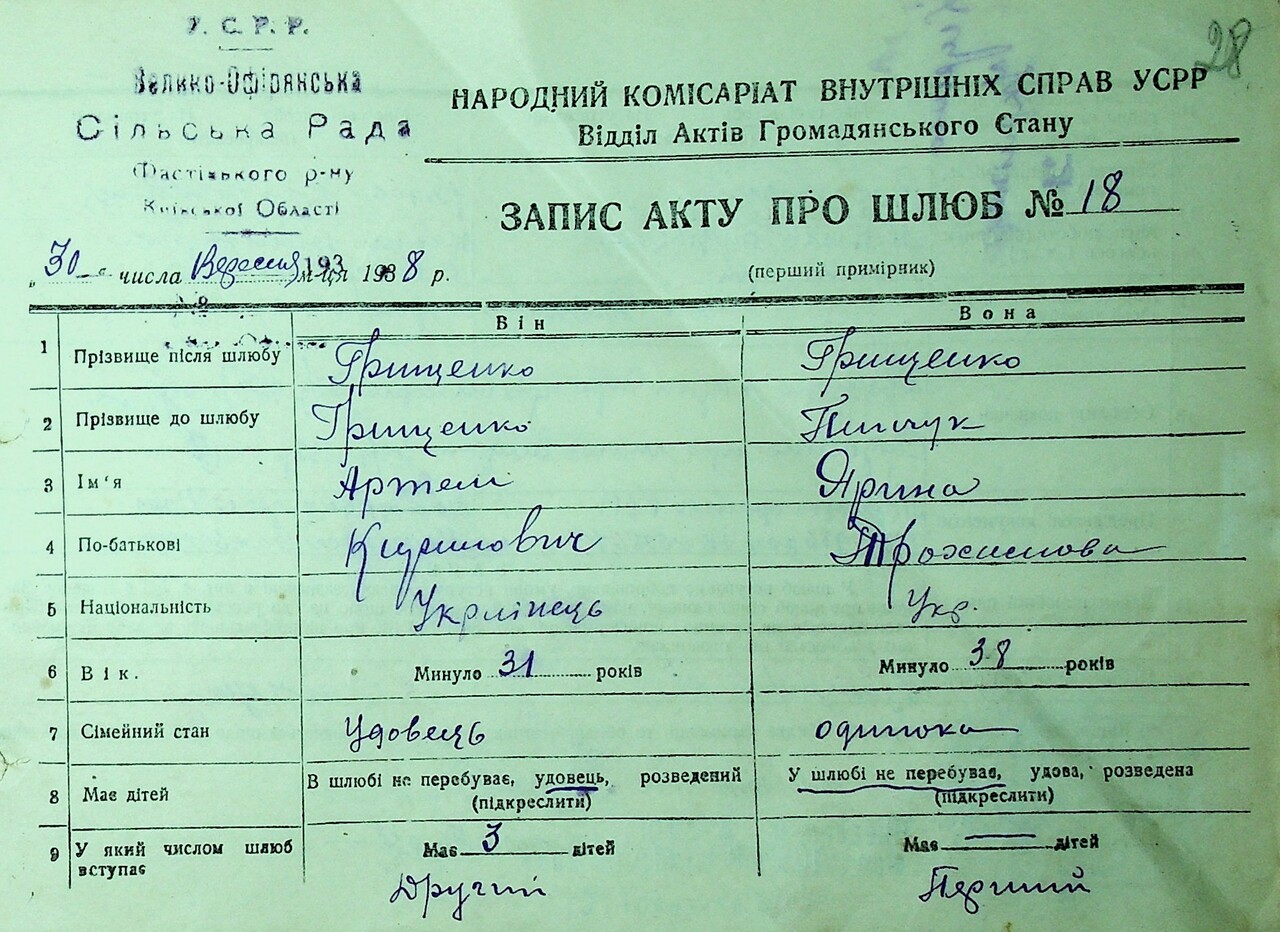 28
У. С. Р. Р.
Велико-Офірянська
Сільська Рада
Фастівського р-ну
Київської Області
НАРОДНИЙ КОМІСАРІАТ ВНУТРІШНІХ СПРАВ УСРР
Відділ Актів Громадянського Стану
ЗАПИС АКТУ ПРО ШЛЮБ № 18
„30“ числа Вересня м-ця 1938 р.
(перший примірник)
Він Вона
1 Прізвище після шлюбу Грищенко Грищенко
2 Прізвище до шлюбу Грищенко
3 Ім'я Артем Ярина
4 По-батькові Трохимовна
5 Національність Українець Укр.
6 Вік. Минуло 31 років Минуло 38 років
7 Сімейний стан Удовець одинока
8 Має дітей В шлюбі не перебуває, удовець, розведений У шлюбі не перебуває, удова, розведена
(підкреслити) (підкреслити)
9 У який числом шлюб вступає Має 3 дітей Має — дітей
Другий Перший